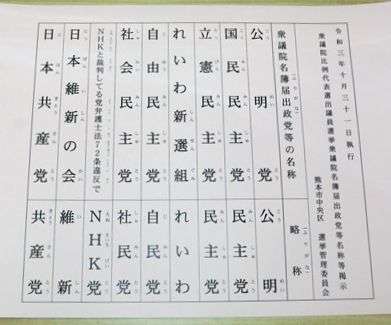 令和三年十月三十一日執行
衆議院比例代表選出議員選挙衆議院名簿届出政党等名称等掲示
熊本市中央区 選挙管理委員会
衆議院名簿届出政党等の名称
略称
公明党
公明
国民民主党
民主党
立憲民主党
民主党
れいわ新選組
れいわ
自由民主党
自民党
社会民主党
社民党
NHKと裁判してる党弁護士法72条違反で
NHK党
日本維新の会
維新
日本共産党
共産党